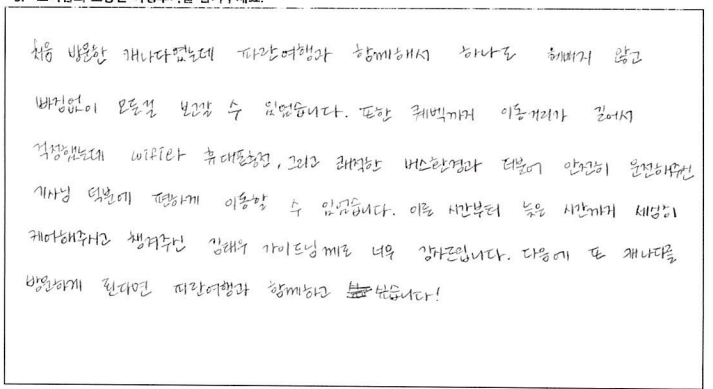 처음 방문한 캐나다였는데 파란여행과 함께해서 하나도 헤매지 않고
빠짐없이 모든걸 보고갈 수 있었습니다. 또한 퀘벡까지 이동거리가 길어서
걱정했는데 wifi와 휴대폰충전, 그리고 쾌적한 버스환경과 더불어 안전히 운전해주신
기사님 덕분에 편하게 이동할 수 있었습니다. 이른 시간부터 늦은 시간까지 세심히
케어해주시고 챙겨주신 김태우 가이드님께도 너무 감사드립니다. 다음에 또 캐나다를
방문하게 된다면 파란여행과 함께하고 싶습니다!